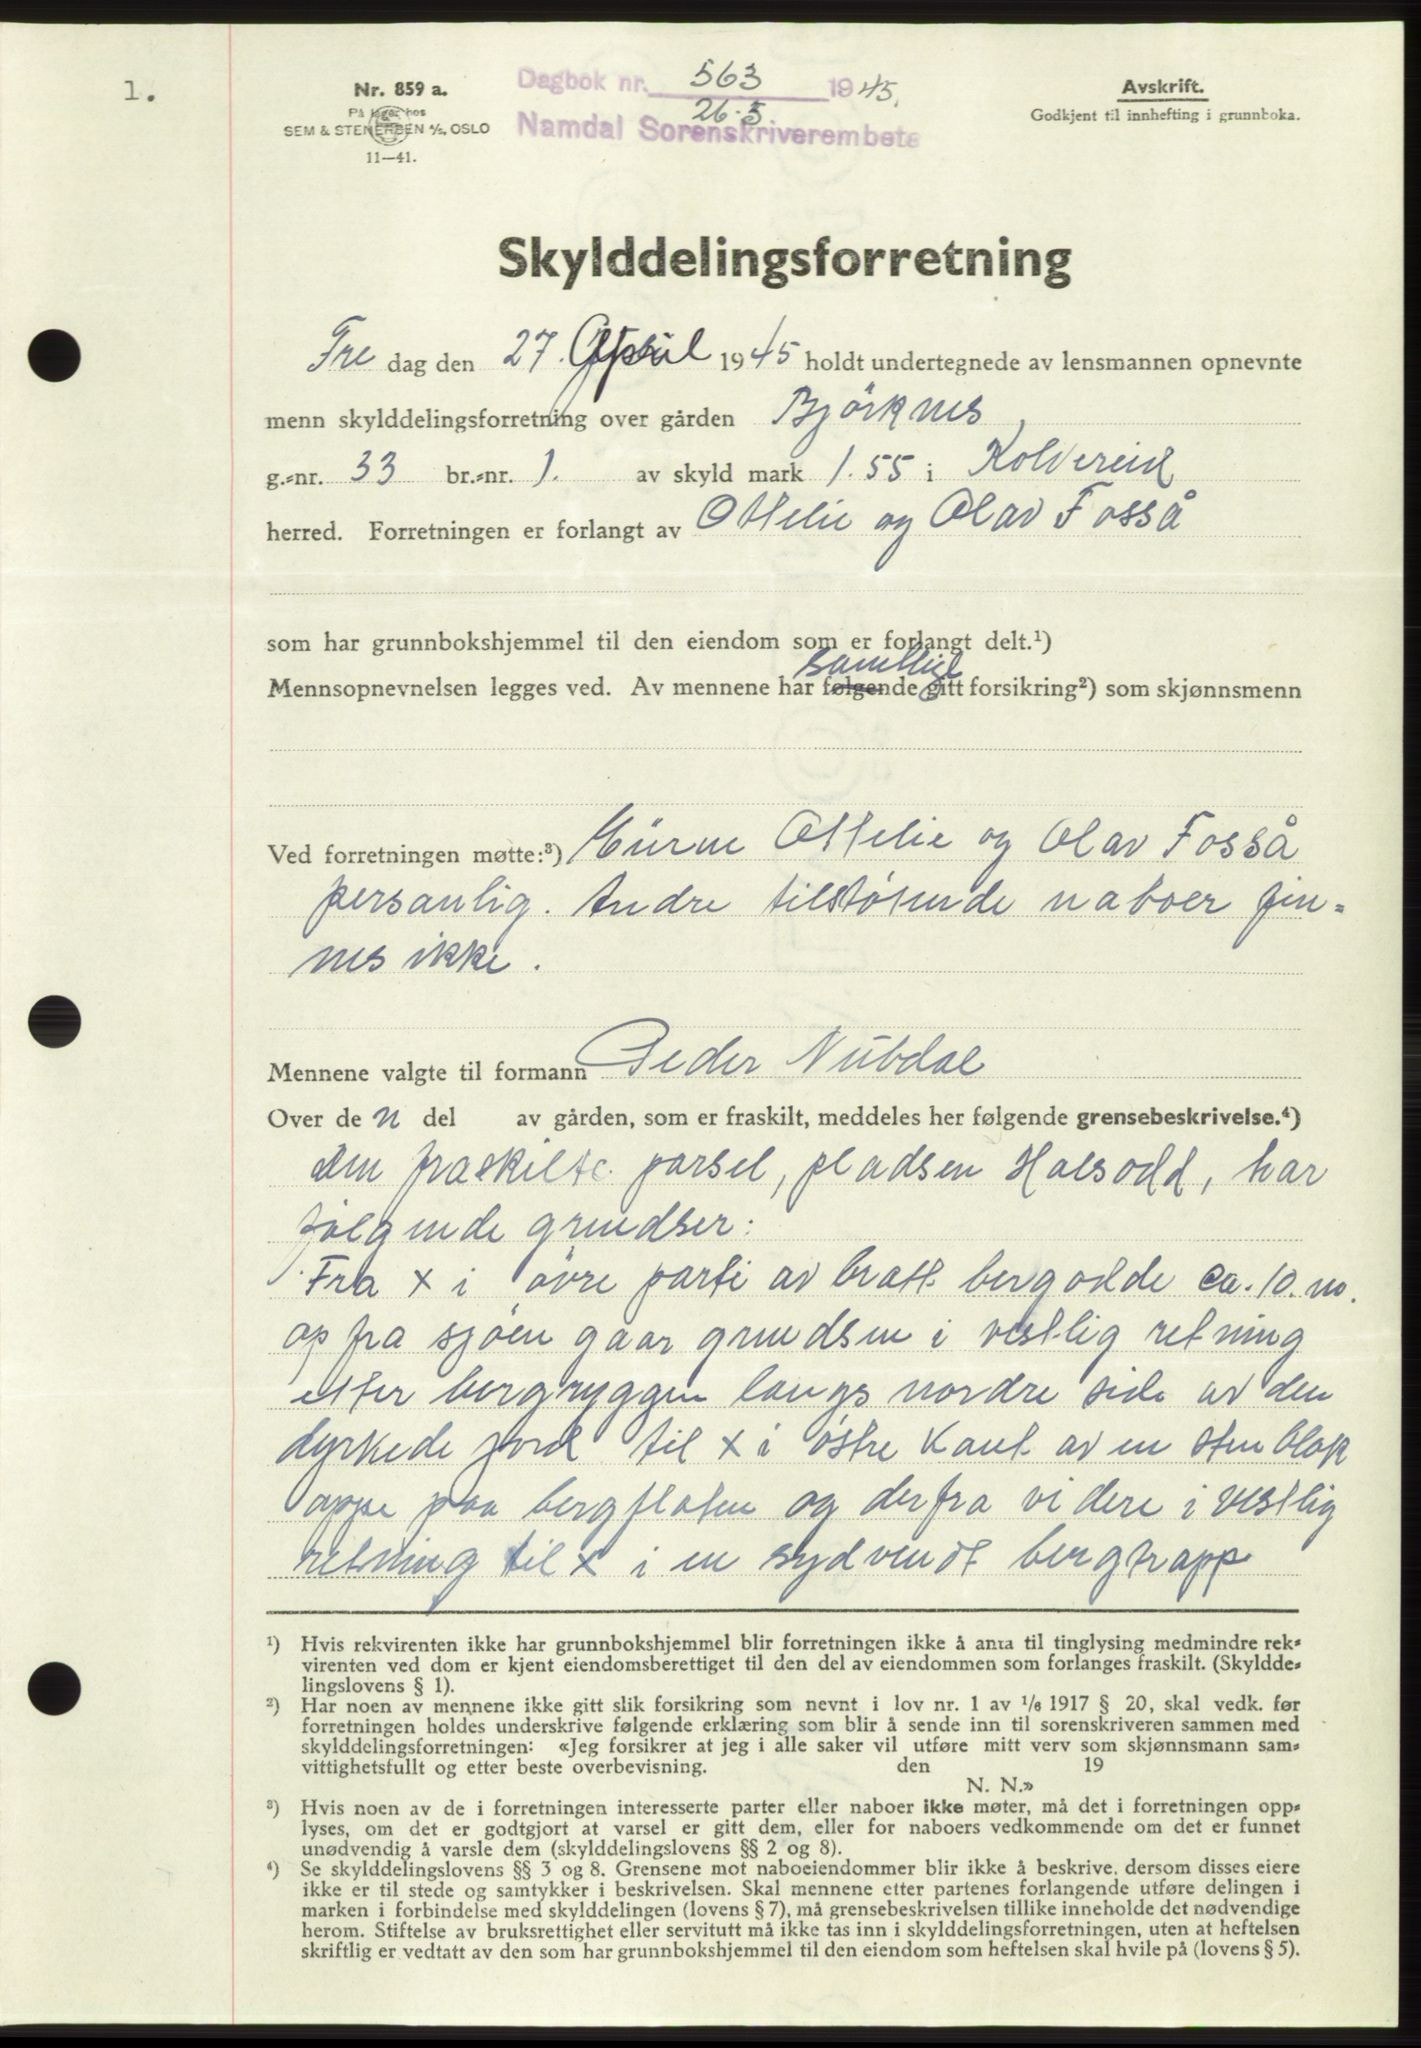 1.
Nr. 859 a.
På lager hos
SEM & STENERSEN A/S, OSLO
11—41.
Dagbok nr. 563 1945.
26-5
Namdal Sorenskriverembete
Avskrift.
Godkjent til innhefting i grunnboka.
Skylddelingsforretning
Fre dag den 27. April 1945 holdt undertegnede av lensmannen opnevnte
menn skylddelingsforretning over gården Björknes
g.=nr. 33 br.=nr. 1. av skyld mark 1.55 i Kolvereid
herred. Forretningen er forlangt av Ottelie og Olav Fosså
som har grunnbokshjemmel til den eiendom som er forlangt delt.¹)
samtlige
Mennsopnevnelsen legges ved. Av mennene har følgende gitt forsikring²) som skjønnsmenn
Ved forretningen møtte:³) Eierne Ottelie og Olav Fosså
personlig. Andre tilstøtende naboer fin=
nes ikke.
Mennene valgte til formann Peder Nubdal
Over de n del av gården, som er fraskilt, meddeles her følgende grensebeskrivelse.⁴)
Den fraskilte parsel, pladsen Halsodd, har
følgende grendser:
Fra x i øvre parti av bratt bergodde ca. 10. m.
op fra sjøen gaar grendsen i vestlig retning
etter bergryggen langs nordre side av den
dyrkede jord til x i østre Kant av en sten blok
oppe paa bergflaten og derfra videre i vestlig
retning til x i en sydvendt bergtrapp
¹) Hvis rekvirenten ikke har grunnbokshjemmel blir forretningen ikke å anta til tinglysing medmindre rek=
virenten ved dom er kjent eiendomsberettiget til den del av eiendommen som forlanges fraskilt. (Skyldde=
lingslovens § 1).
²) Har noen av mennene ikke gitt slik forsikring som nevnt i lov nr. 1 av 1/6 1917 § 20, skal vedk. før
forretningen holdes underskrive følgende erklæring som blir å sende inn til sorenskriveren sammen med
skylddelingsforretningen: «Jeg forsikrer at jeg i alle saker vil utføre mitt verv som skjønnsmann sam=
vittighetsfullt og etter beste overbevisning. den 19
N. N.»
³) Hvis noen av de i forretningen interesserte parter eller naboer ikke møter, må det i forretningen opp=
lyses, om det er godtgjort at varsel er gitt dem, eller for naboers vedkommende om det er funnet
unødvendig å varsle dem (skylddelingslovens §§ 2 og 8).
⁴) Se skylddelingslovens §§ 3 og 8. Grensene mot naboeiendommer blir ikke å beskrive, dersom disses eiere
ikke er til stede og samtykker i beskrivelsen. Skal mennene etter partenes forlangende utføre delingen i
marken i forbindelse med skylddelingen (lovens § 7), må grensebeskrivelsen tillike inneholde det nødvendige
herom. Stiftelse av bruksrettighet eller servitutt må ikke tas inn i skylddelingsforretningen, uten at heftelsen
skriftlig er vedtatt av den som har grunnbokshjemmel til den eiendom som heftelsen skal hvile på (lovens § 5).